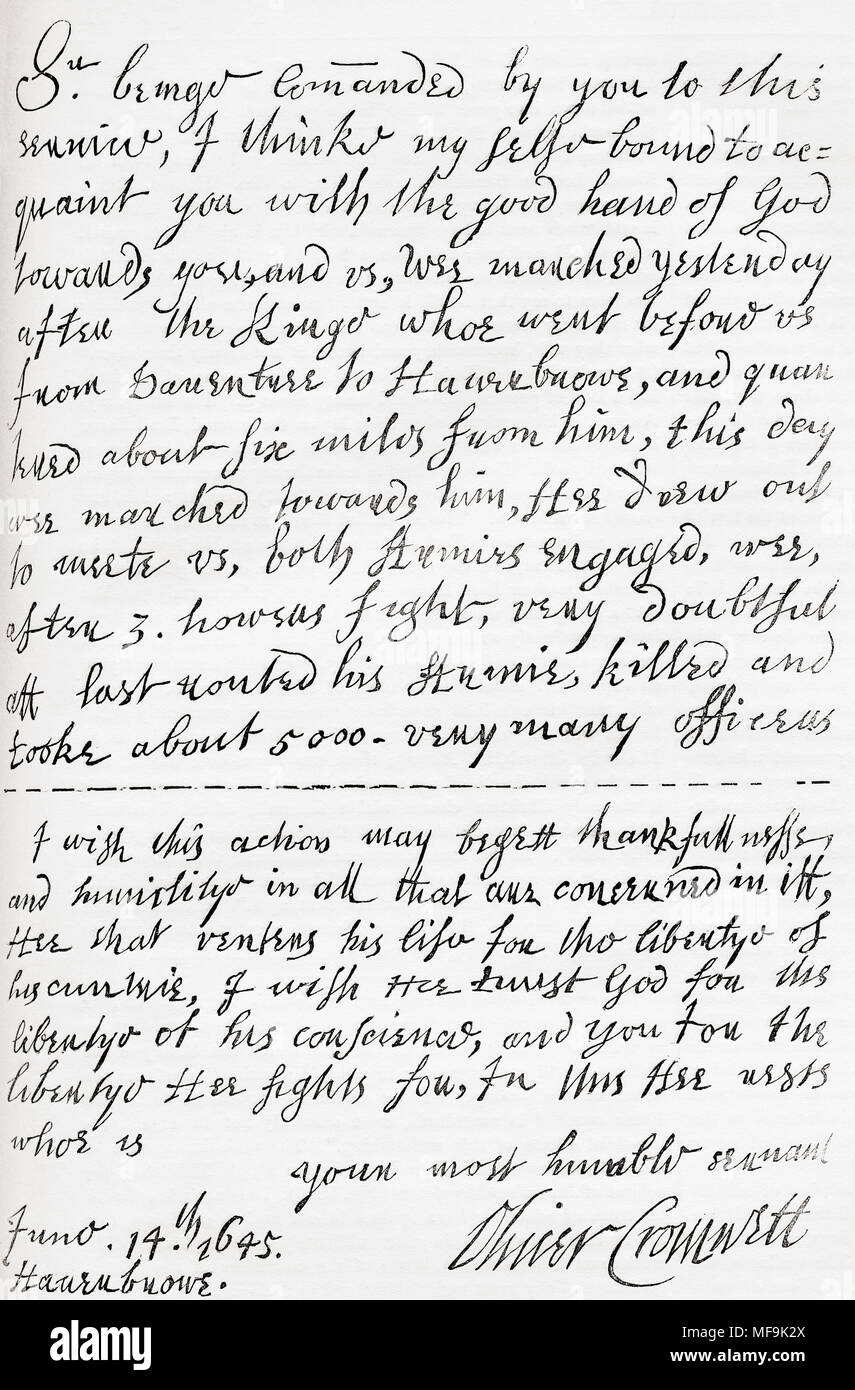 Sr. beinge Com̄anded by you to this
seruice, I thinke my selfe bound to ac=
quaint you with the good hand of God
towards you, and vs, Wee marched yesterday
after the Kinge whoe went before vs
from Dauentree to Hauerbrowe, and quar
tered about six miles from him, this day
wee marched towards him, Hee drew out
to meete vs, both Armies engaged, wee,
after 3. howers fight, very doubtful
att last routed his Armie, killed and
tooke about 5000- very many officers
I wish this action may begett thankfullnesse,
and humilitye in all that are concerned in itt,
Hee that venters his life for the libertye of
his cuntrie, I wish Hee trust God for the
libertye of his conscience, and you for the
libertye Hee fights for, In this Hee rests
whoe is
your most humble seruant
Oliver Cromwell
June. 14.th 1645.
Hauerbrowe.
alamy
Image ID: MF9K2X
www.alamy.com